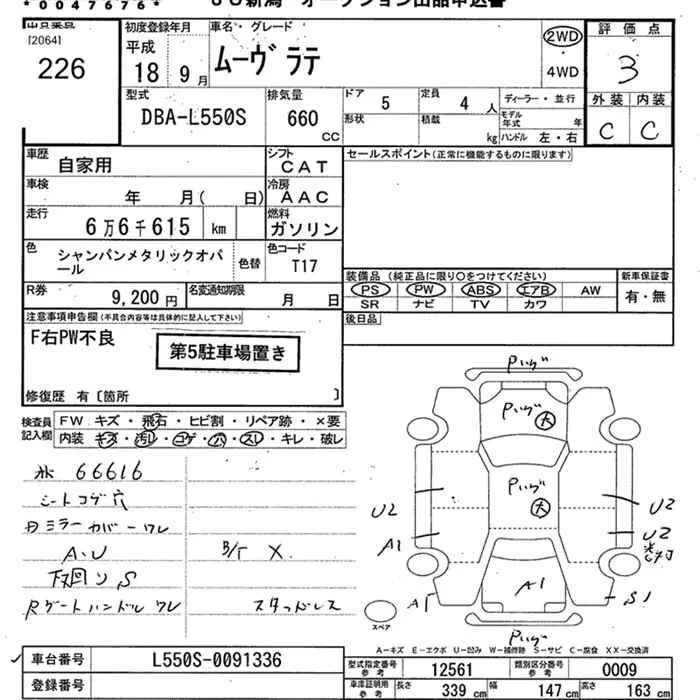 *0047676*
[2064]
226
初度登録年月
車名・グレード
評価点
平成
18年 9月
ムーヴ ラテ
2WD
4WD
3
型式
DBA-L550S
排気量
660 CC
ドア 5
形状
定員 4 人
積載 kg
ディーラー・並行
モデル年式 年
ハンドル 左・右
外装 内装
C C
車歴
自家用
シフト
CAT
セールスポイント(正常に機能するものに限ります)
車検
年 月( 日)
冷房
AAC
走行
6万6千615 km
燃料
ガソリン
色
シャンパンメタリックオパール
色替
色コード
T17
装備品(純正品に限り○をつけてください)
新車保証書
PS PW ABS エアB AW
SR ナビ TV カワ
有・無
R券
9,200円
名変通知期限
月 日
後日品
注意事項申告欄(不具合内容等は具体的に記入して下さい)
F右PW不良
第5駐車場置き
修復歴 有〔箇所 〕
検査員記入欄
FW キズ・飛石・ヒビ割・リペア跡・×要
内装 キズ・汚レ・コゲ・穴・スレ・キレ・破レ
66616
シートコゲ穴
ミラーカバーワレ
A.U
下廻リS
B/T X
Rゲートハンドルワレ
スタッドレス
大
大
U2
A1
A1
A1
U2
U2
S1
スペア
A－キズ E－エクボ U－凹み W－補修跡 S－サビ C－腐食 XX－交換済
車台番号
L550S-0091336
登録番号
型式指定番号 参考
12561
類別区分番号 参考
0009
車庫証明用 参考
長さ 339 cm
幅 147 cm
高さ 163 cm